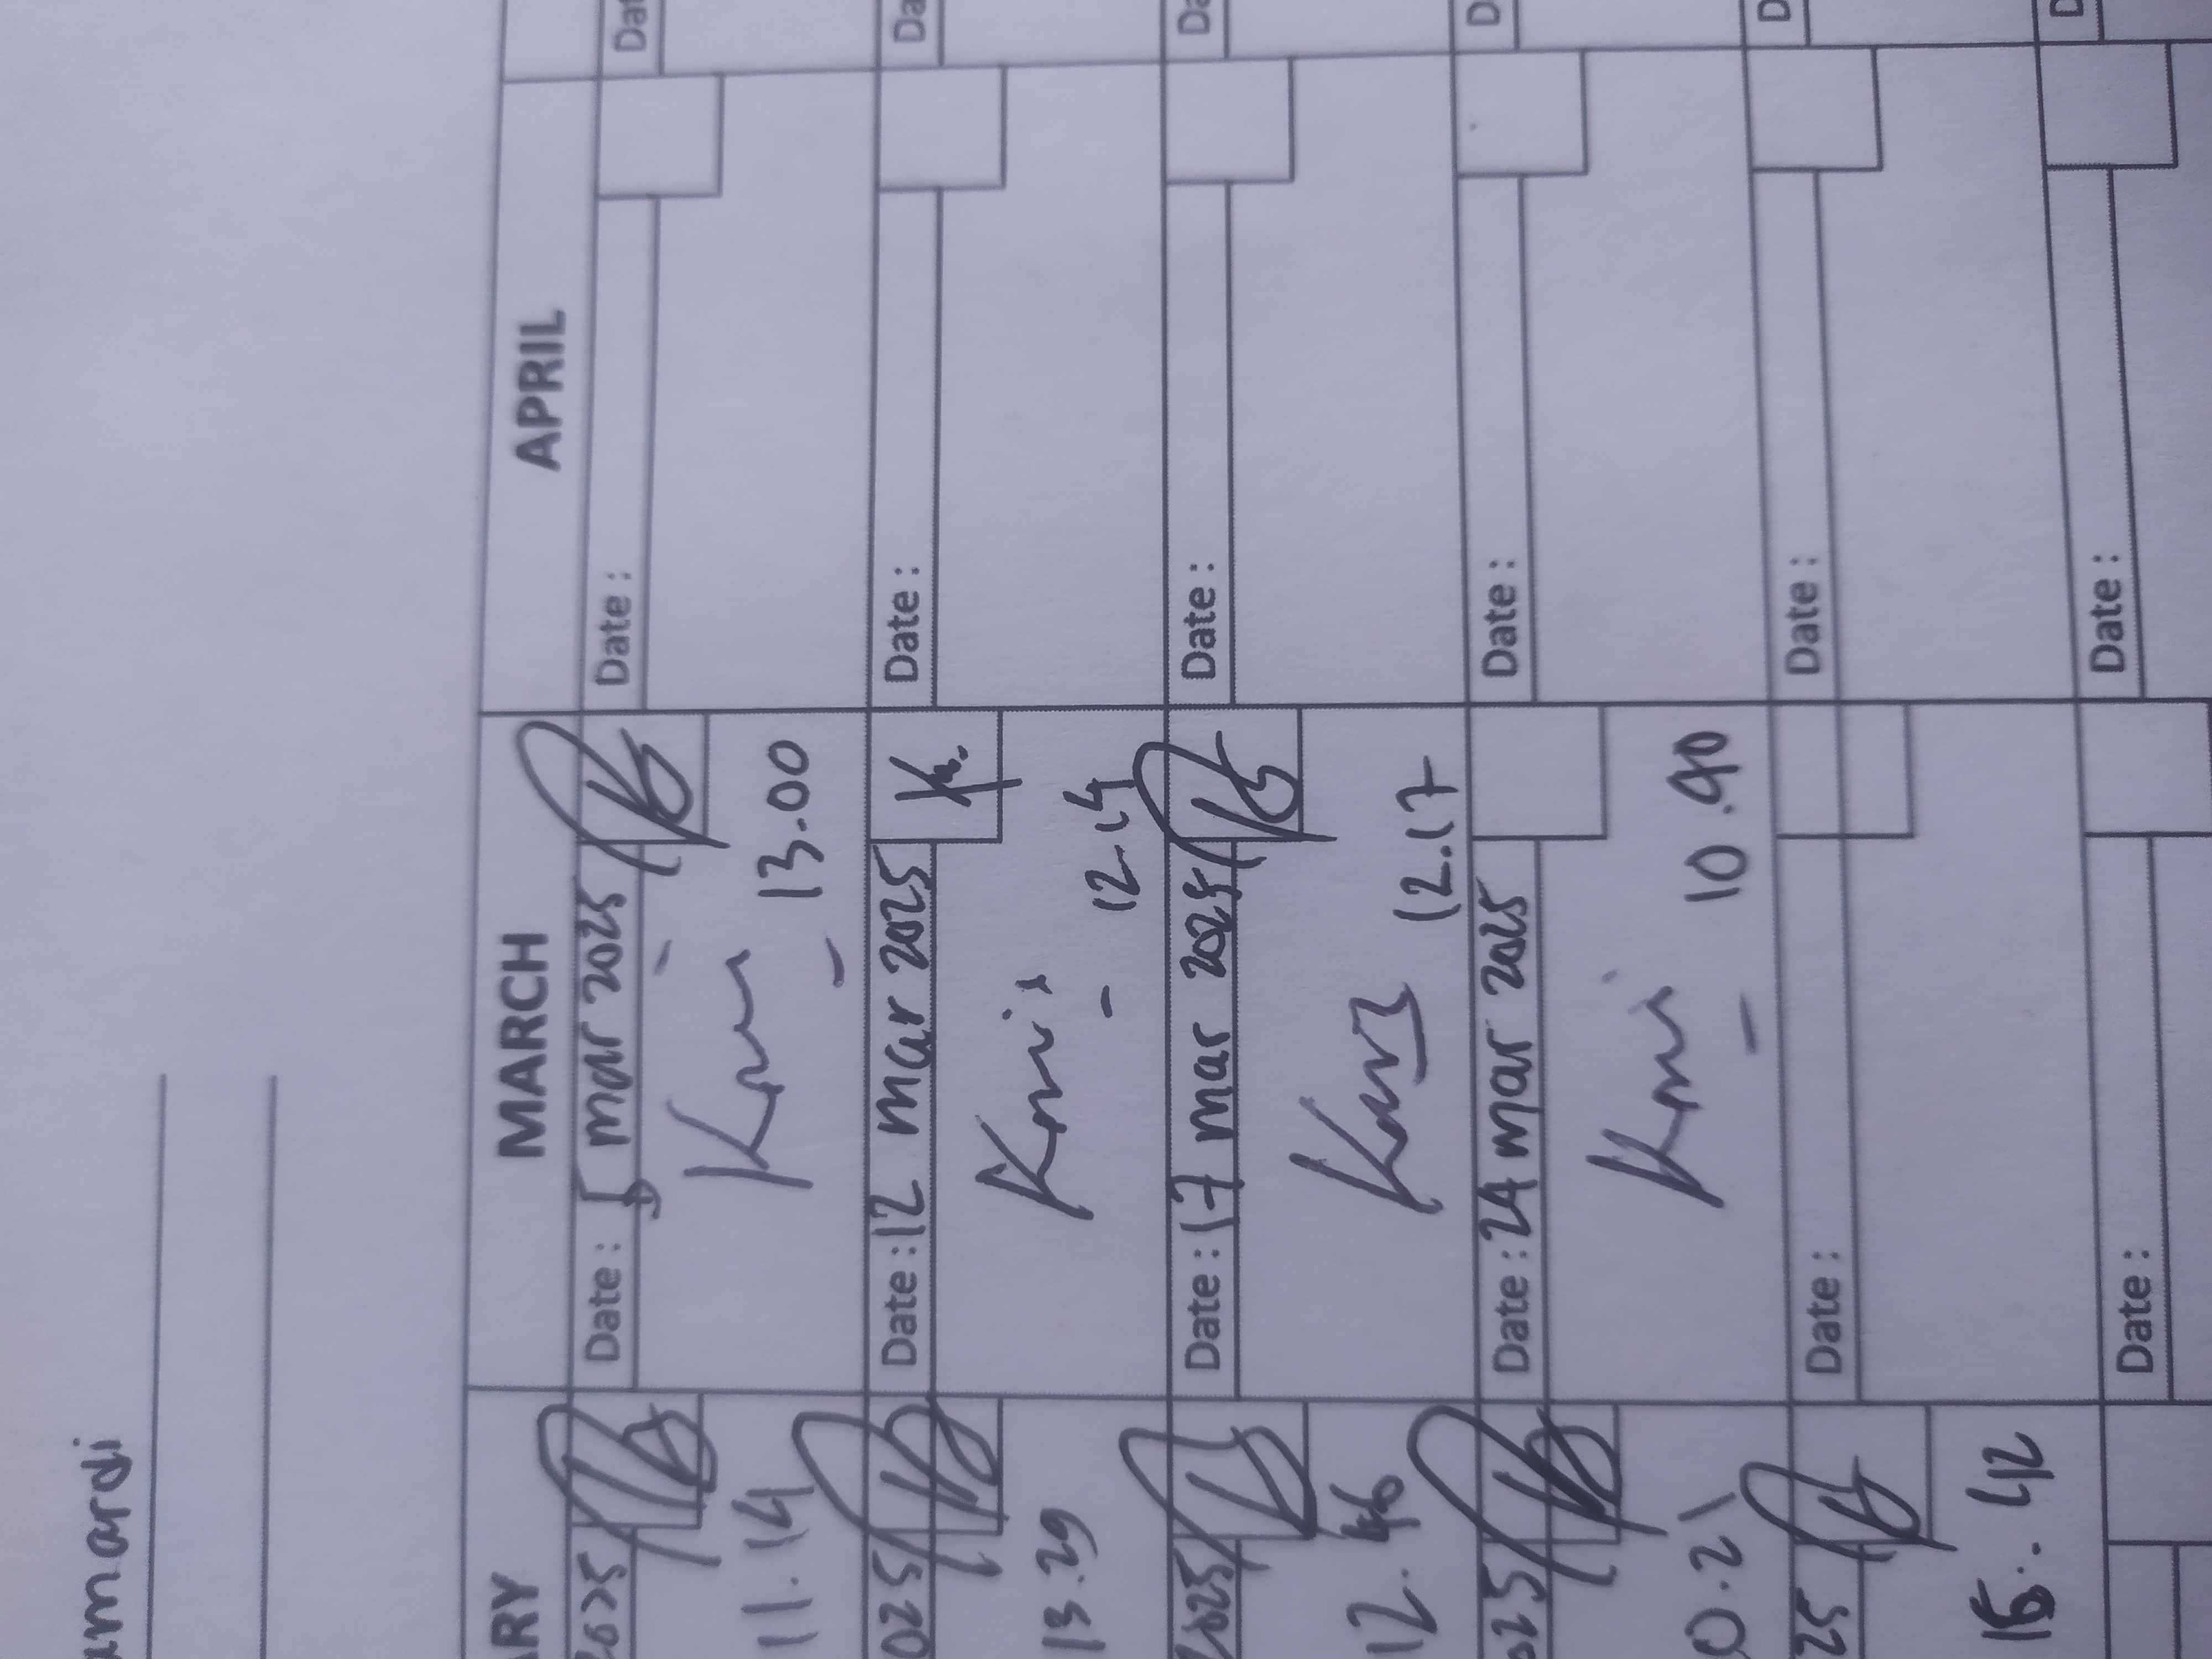 umardi
ARY MARCH APRIL
2025 Date : 5 mar 2025 Date : Dat
11.14 13.00
025 Date : 12 mar 2025 Date : Da
13.29 12.14
2025 Date : 17 mar 2025 Date : Da
12.46 12.17
025 Date : 24 mar 2025 Date : D
0.21 10.40
25 Date : Date : D
15.42
Date : Date : D